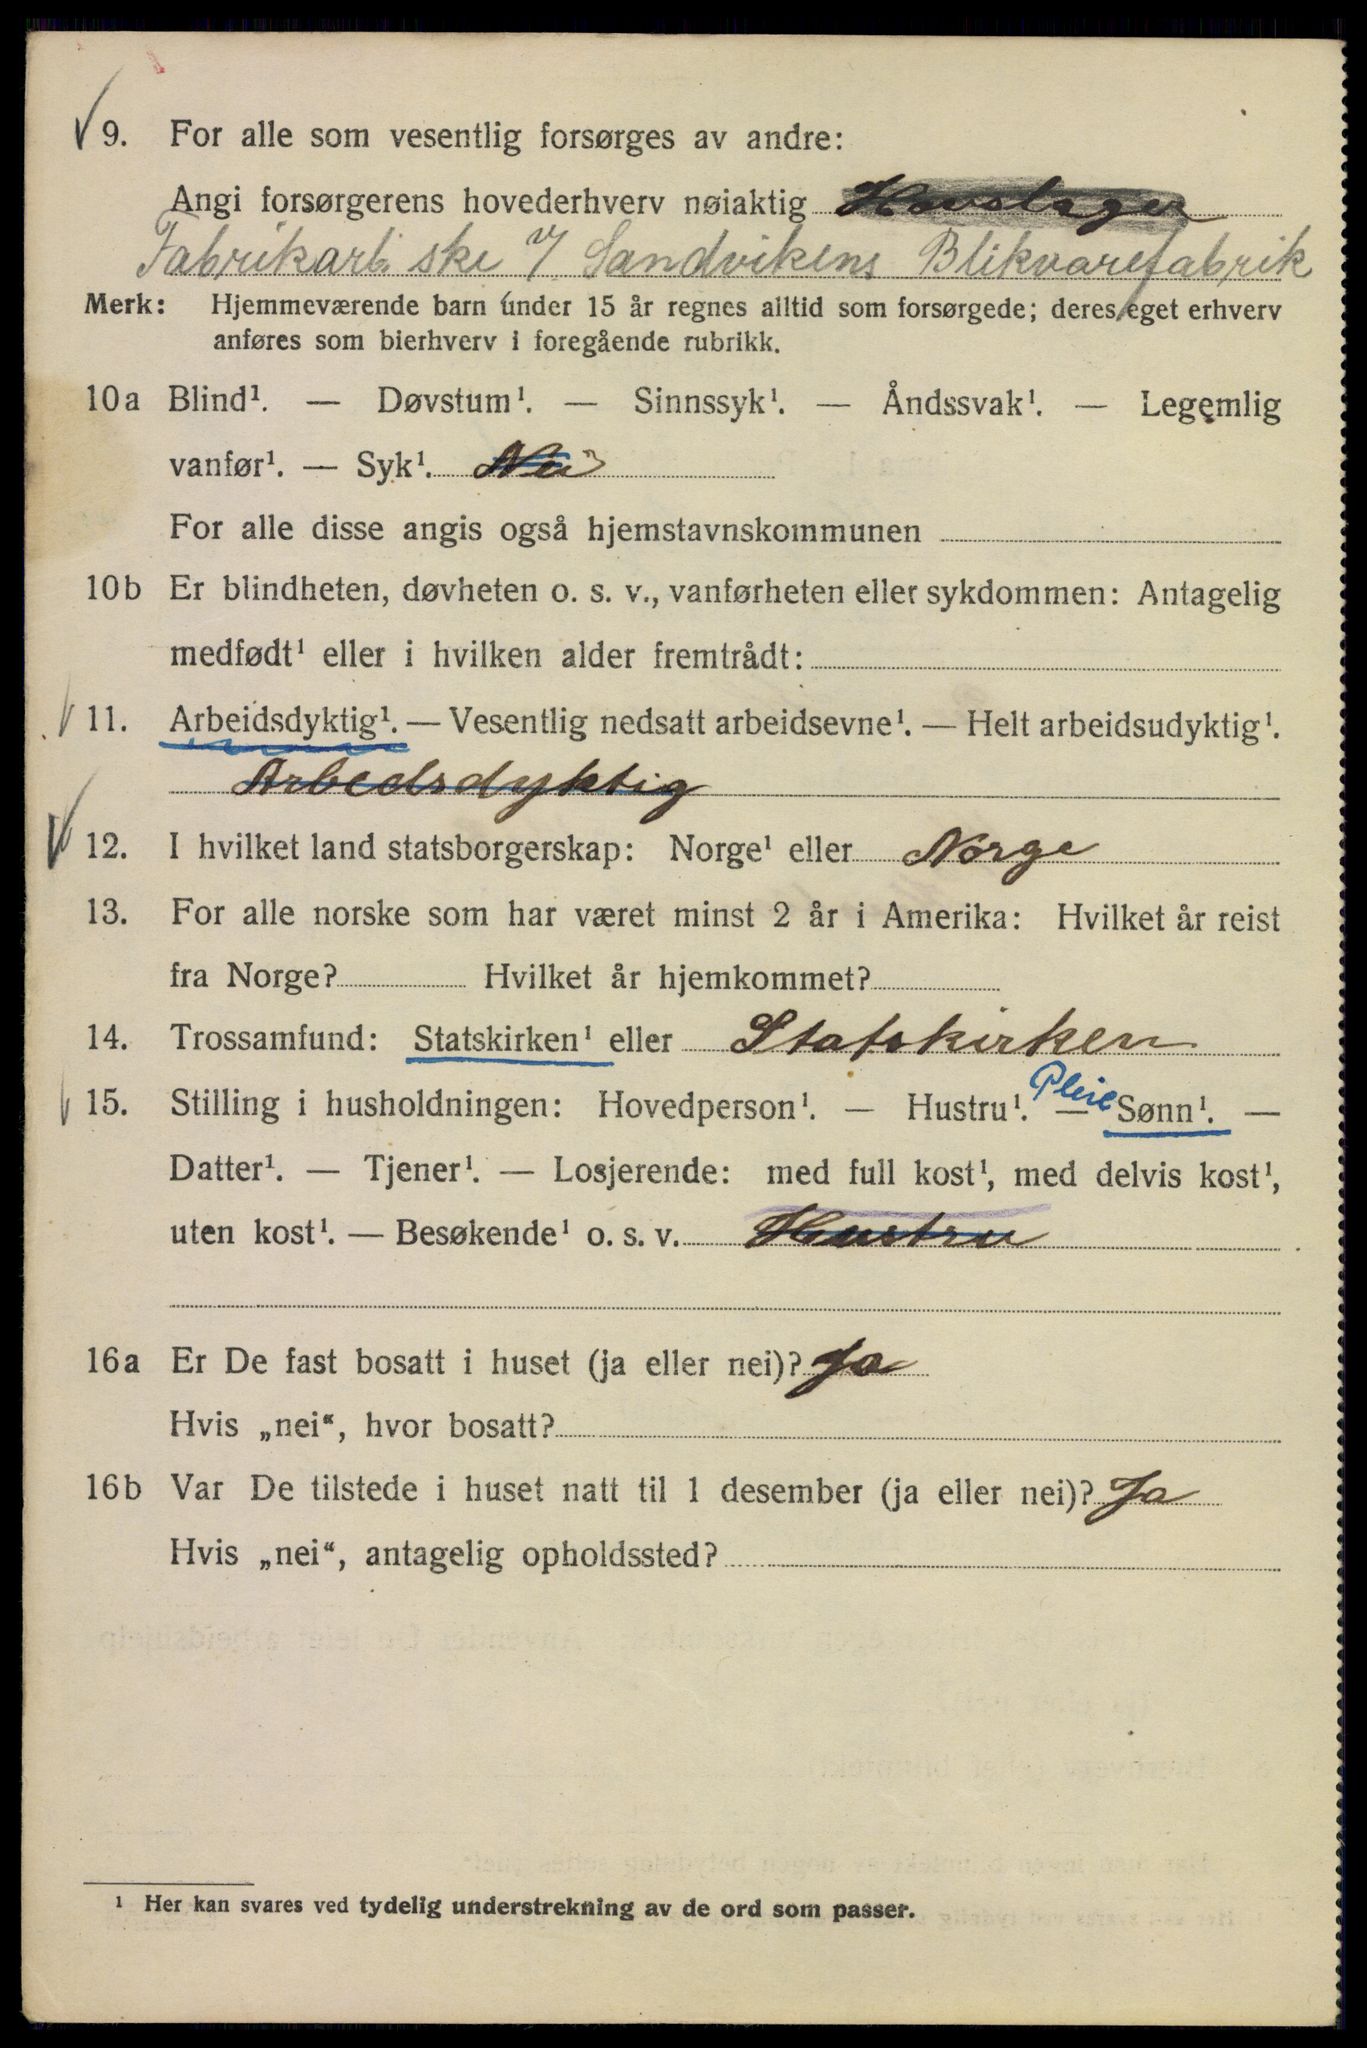 9. For alle som vesentlig forsørges av andre:
Angi forsørgerens hovederhverv nøiaktig
Fabrikarb. ske v/ Sandvikens Blikvarefabrik
Merk: Hjemmeværende barn under 15 år regnes alltid som forsørgede; deres eget erhverv
anføres som bierhverv i foregående rubrikk.
10a Blind¹. — Døvstum¹. — Sinnssyk¹. — Åndssvak¹. — Legemlig
vanfør¹. — Syk¹. Nei
For alle disse angis også hjemstavnskommunen
10b Er blindheten, døvheten o. s. v., vanførheten eller sykdommen: Antagelig
medfødt¹ eller i hvilken alder fremtrådt:
11. Arbeidsdyktig¹. — Vesentlig nedsatt arbeidsevne¹. — Helt arbeidsudyktig¹.
Arbedsdyktig
12. I hvilket land statsborgerskap: Norge¹ eller Norge
13. For alle norske som har været minst 2 år i Amerika: Hvilket år reist
fra Norge? Hvilket år hjemkommet?
14. Trossamfund: Statskirken¹ eller Statskirken
15. Stilling i husholdningen: Hovedperson¹. — Hustru¹. — Pleie Sønn¹. —
Datter¹. — Tjener¹. — Losjerende: med full kost¹, med delvis kost¹,
uten kost¹. — Besøkende¹ o. s. v. Hustru
16a Er De fast bosatt i huset (ja eller nei)? Ja
Hvis „nei“, hvor bosatt?
16b Var De tilstede i huset natt til 1 desember (ja eller nei)? Ja
Hvis „nei“, antagelig opholdssted?
¹ Her kan svares ved tydelig understrekning av de ord som passer.